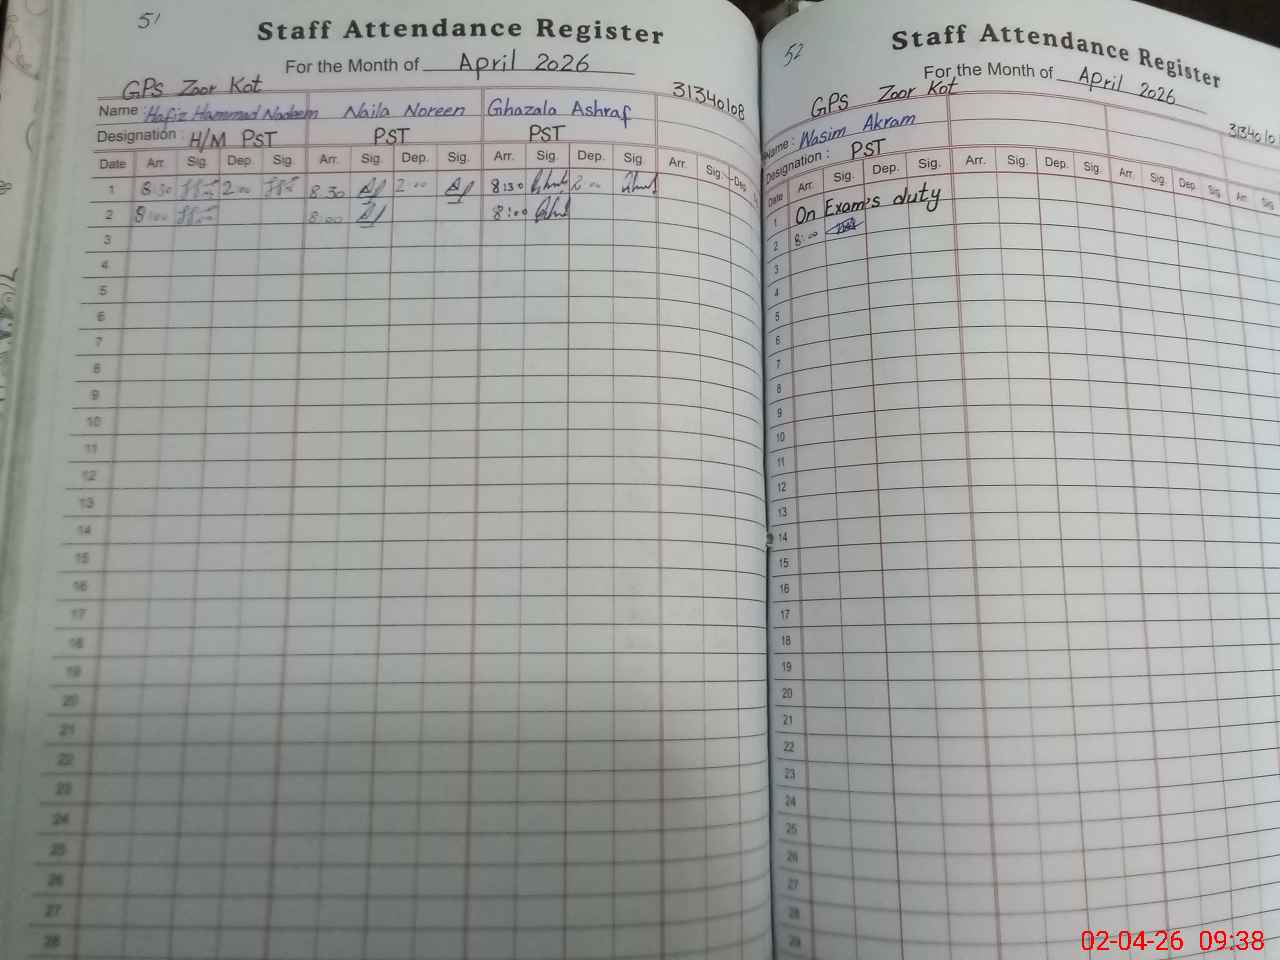 51
Staff Attendance Register
For the Month of April 2026
GPS Zoor Kot 31340108
Name : Hafiz Hammad Nadeem Naila Noreen Ghazala Ashraf
Designation : H/M PST PST PST
Date Arr. Sig. Dep. Sig. Arr. Sig. Dep. Sig. Arr. Sig. Dep. Sig. Arr. Sig. Dep.
1 8:30 2:00 8:30 2:00 8:30 2:00
2 8:00 8:00 8:00
3
4
5
6
7
8
9
10
11
12
13
14
15
16
17
18
19
20
21
22
23
24
25
26
27
28
52
Staff Attendance Register
For the Month of April 2026
GPS Zoor Kot 3134010
Name : Wasim Akram
Designation : PST
Date Arr. Sig. Dep. Sig. Arr. Sig. Dep. Sig. Arr. Sig. Dep. Sig. Arr. Sig.
1 On Exam's duty
2 8:00
3
4
5
6
7
8
9
10
11
12
13
14
15
16
17
18
19
20
21
22
23
24
25
26
27
28
29
02-04-26 09:38